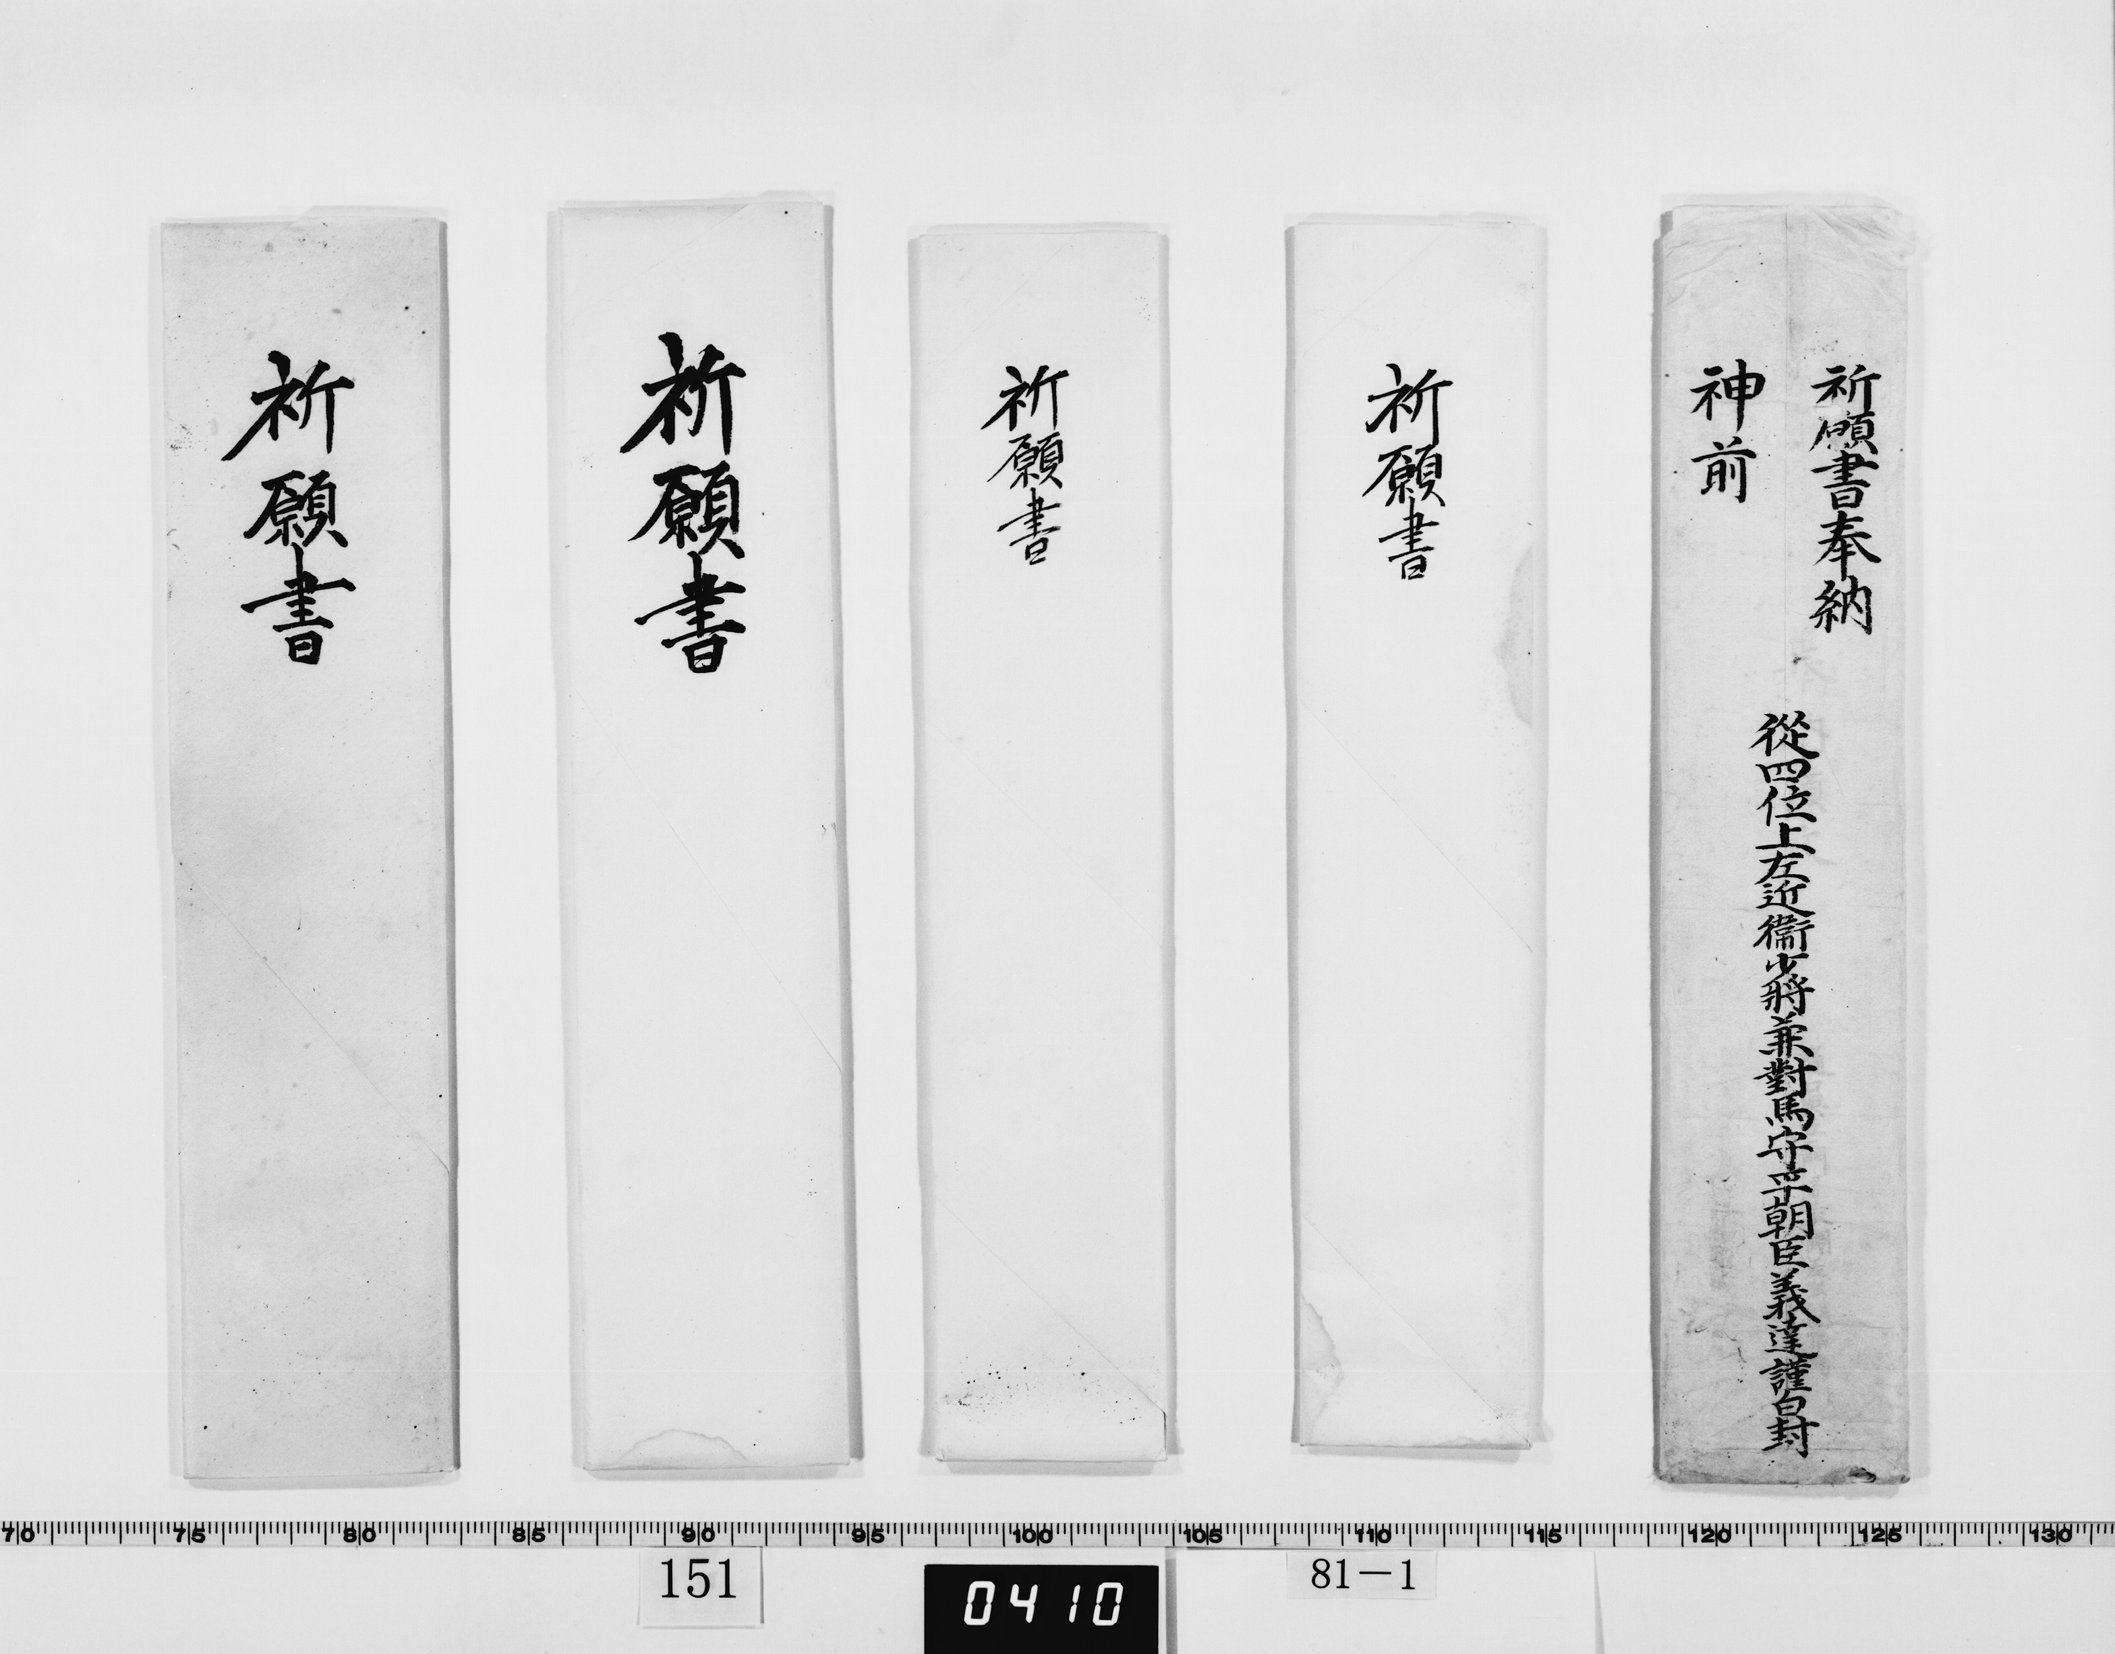 祈願書奉納
神前
從四位上左近衞少將兼對馬守平朝臣義達謹白封
祈願書
祈願書
祈願書
祈願書
70 75 80 85 90 95 100 105 110 115 120 125 130
151
0410
81-1